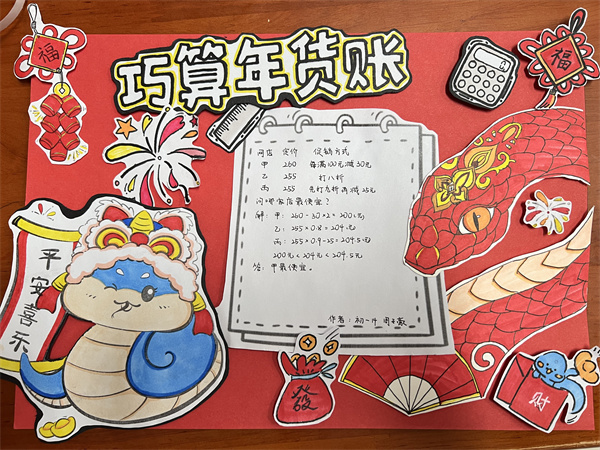 福
福
巧算年货账
网店 定价 促销方式
甲 260 每满100元减30元
乙 255 打八折
丙 255 先打九折再减25元
问哪家店最便宜？
解：甲：260-30×2=200(元)
乙：255×0.8=204(元)
丙：255×0.9-25=204.5(元)
200元<204元<204.5元
答：甲最便宜。
作者：初一
平安喜乐
發
财